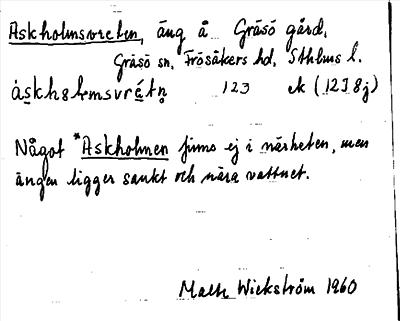 Askholmsvreten, äng å Gräsö gård,
Gräsö sn, Frösåkers hd, Sthlms l.
123 ek (12I8j)
Något *Askholmen finns ej i närheten, men
ängen ligger sankt och nära vattnet.
Malte Wickström 1960